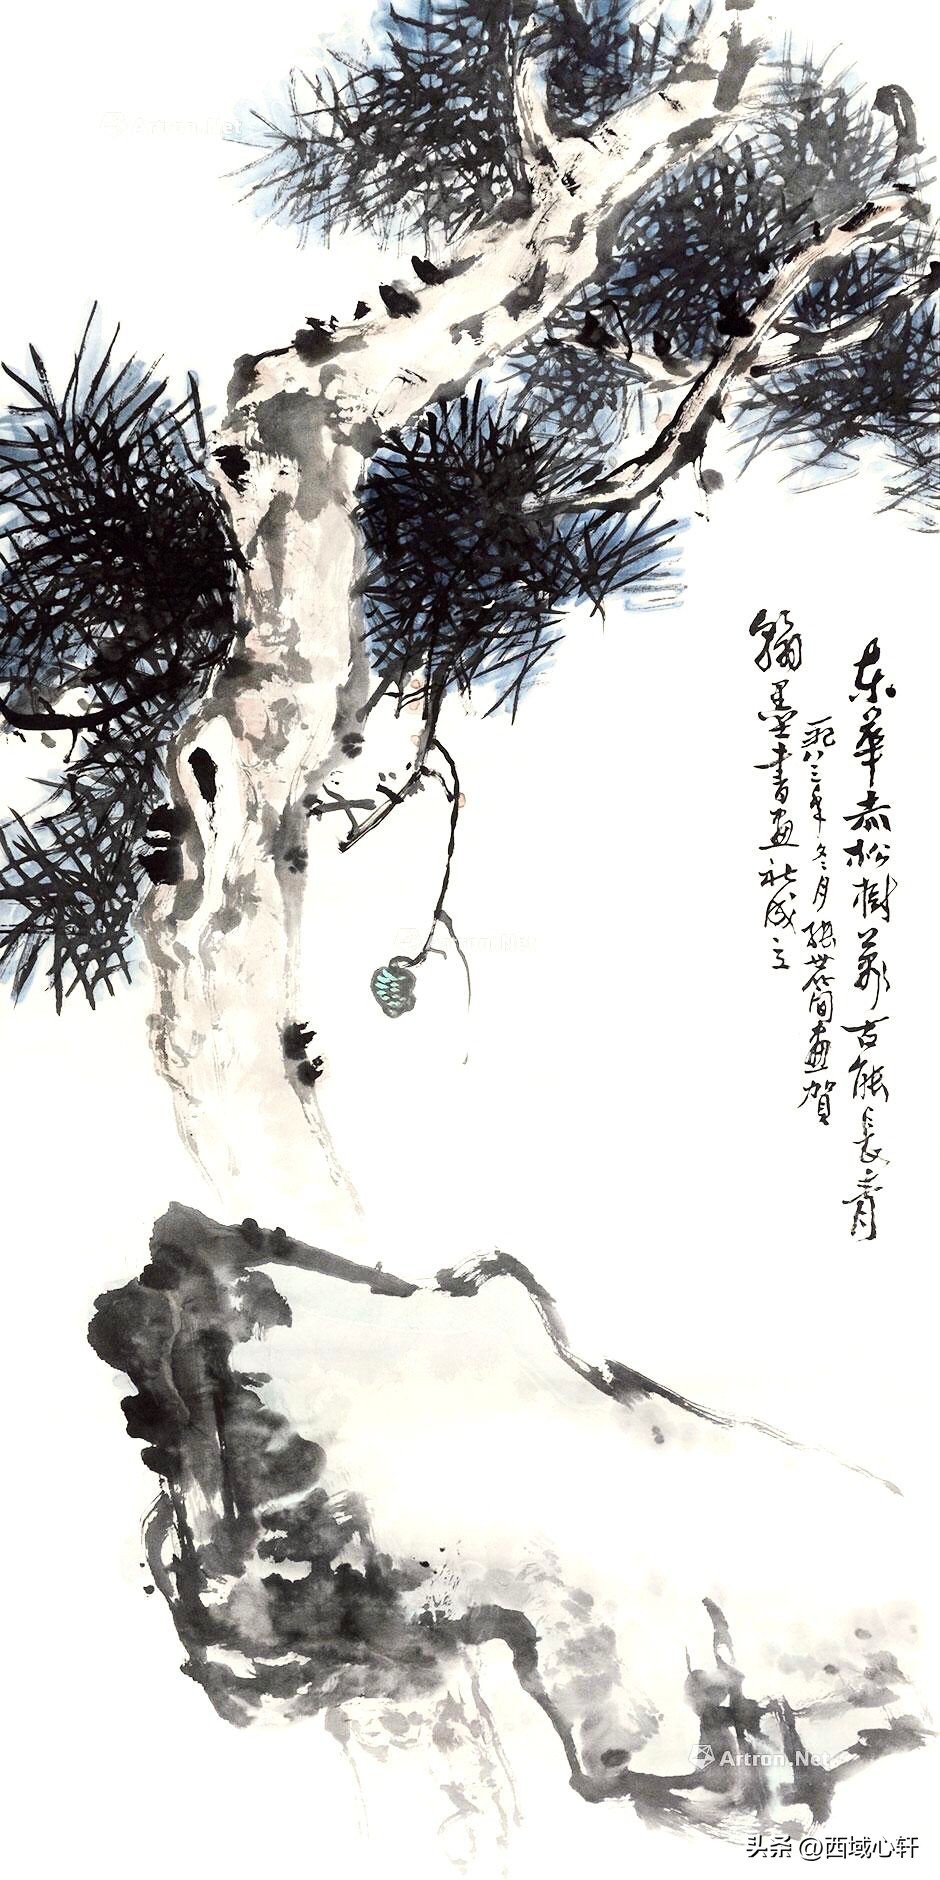 东華赤松樹萬古能長青
一九八三年冬月張世简畫賀
翰墨書畫社成立
Artron.Net
Artron.Net
Artron.Net
头条 @西域心轩